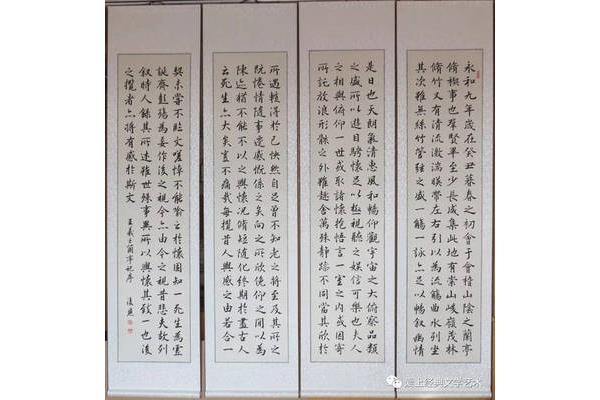 永和九年歲在癸丑暮春之初會于會稽山陰之蘭亭
脩禊事也群賢畢至少長咸集此地有崇山峻嶺茂林
脩竹又有清流激湍暎帶左右引以為流觴曲水列坐
其次雖無絲竹管弦之盛一觴一詠亦足以暢叙幽情
是日也天朗氣清惠風和暢仰觀宇宙之大俯察品類
之盛所以遊目騁懷足以極視聽之娛信可樂也夫人
之相與俯仰一世或取諸懷抱悟言一室之內或因寄
所託放浪形骸之外雖趣舍萬殊靜躁不同當其欣於
所遇暫得於己怏然自足曾不知老之將至及其所之
既惓情隨事遷感慨係之矣向之所欣俛仰之間以為
陳迹猶不能不以之興懷況脩短隨化終期於盡古人
云死生亦大矣豈不痛哉每攬昔人興感之由若合一
契未嘗不臨文嗟悼不能喻之於懷固知一死生為虛
誕齊彭殤為妄作後之視今亦由今之視昔悲夫故列
叙時人錄其所述雖世殊事異所以興懷其致一也後
之攬者亦將有感於斯文
王羲之蘭亭記序
爱上经典文学艺术